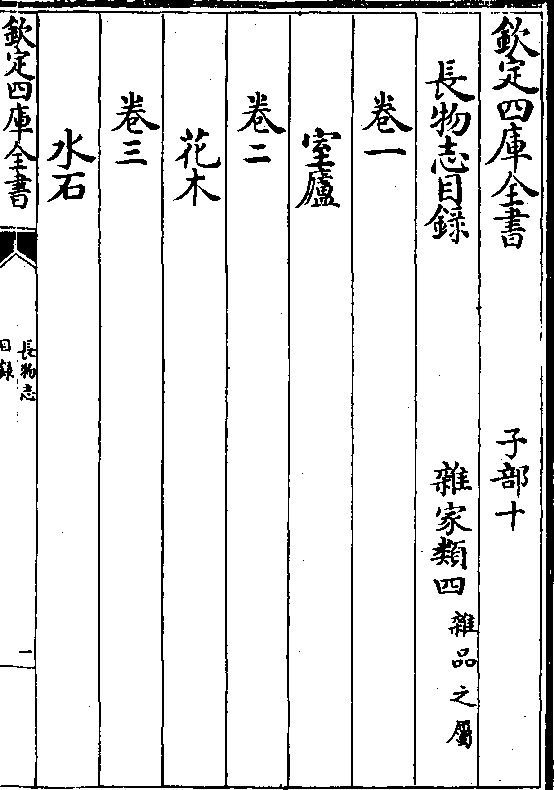 欽定四庫全書 子部十
長物志目錄 雜家類四 雜品之屬
卷一
室廬
卷二
花木
卷三
水石
欽定四庫全書
長物志
目錄
一